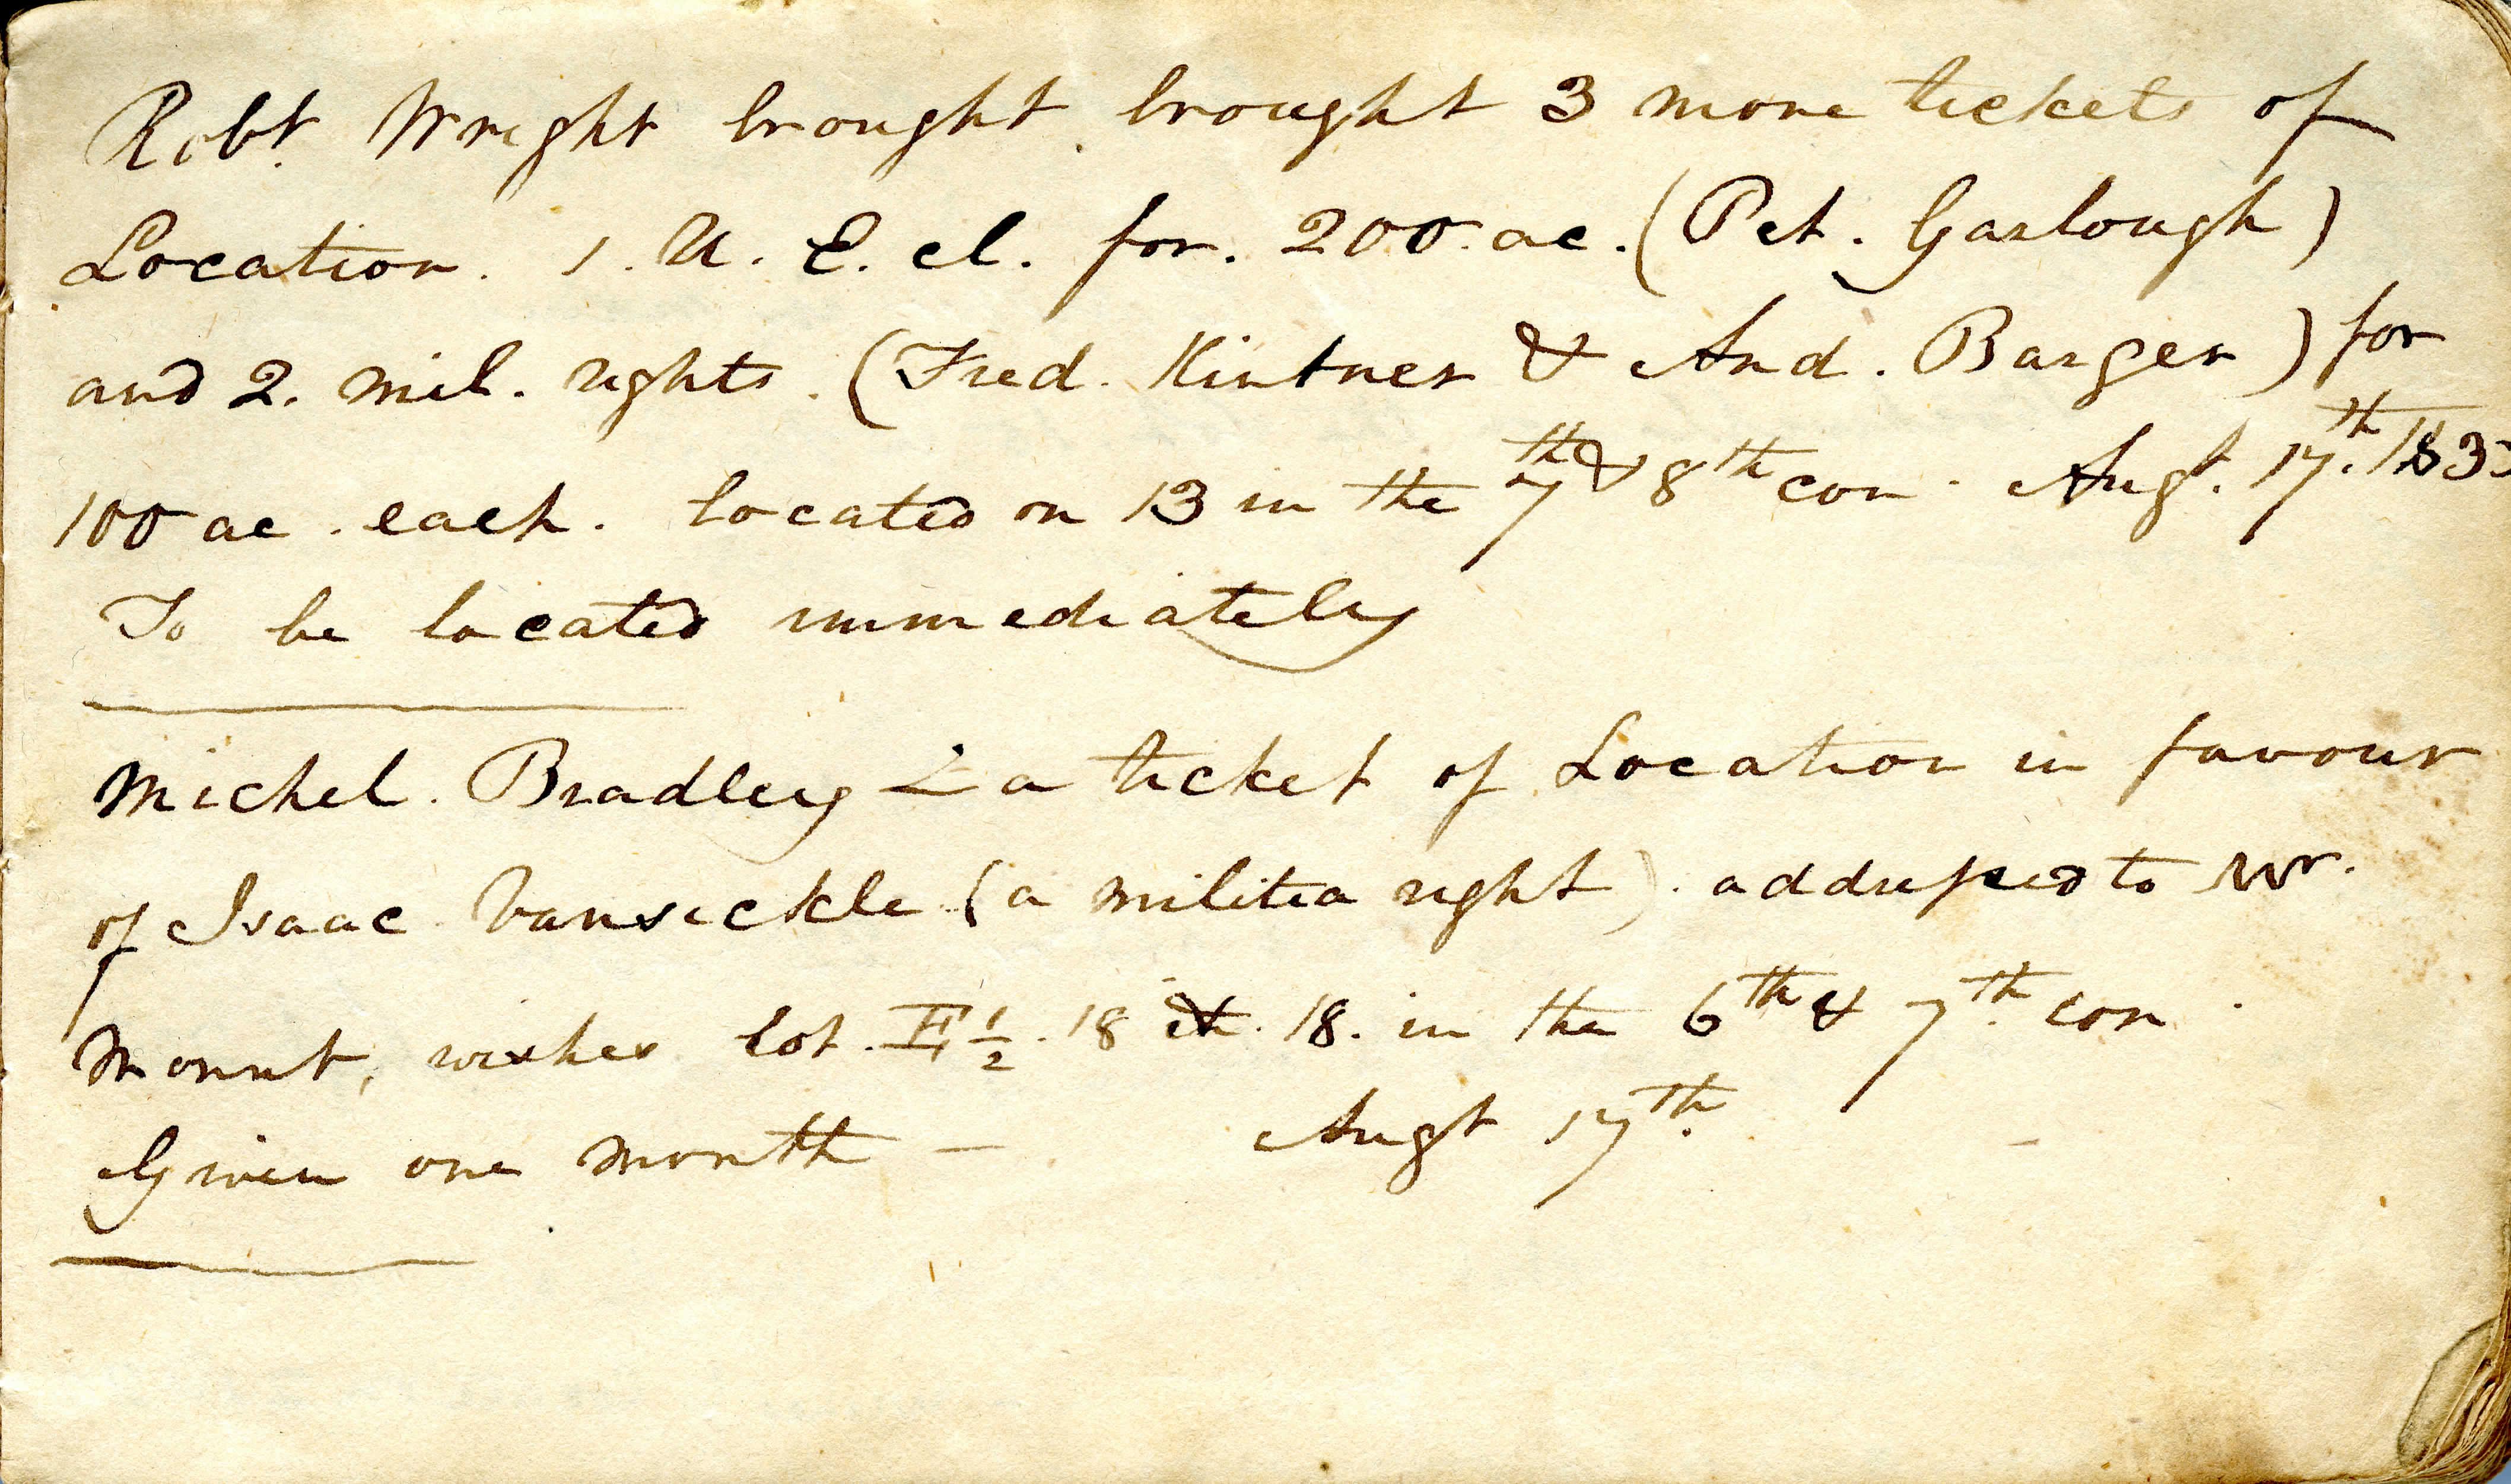 Robt. Wright brought brought 3 more tickets of
Location. 1. U. E. cl. for. 200. ac. (Pet. Garlough)
and 2. mil. rights. (Fred. Kintner & And. Barger) for
100 ac. each. located on 13 in the 7th & 8th con. Augt. 17th. 183
To be located immediately
Michel. Bradley a ticket of Location in favour
of Isaac Vansickle (a militia right). addressed to Mr.
Mount, wishes lot. E 1/2. 18 18. in the 6th & 7th con.
Given one month — Augt 17th.